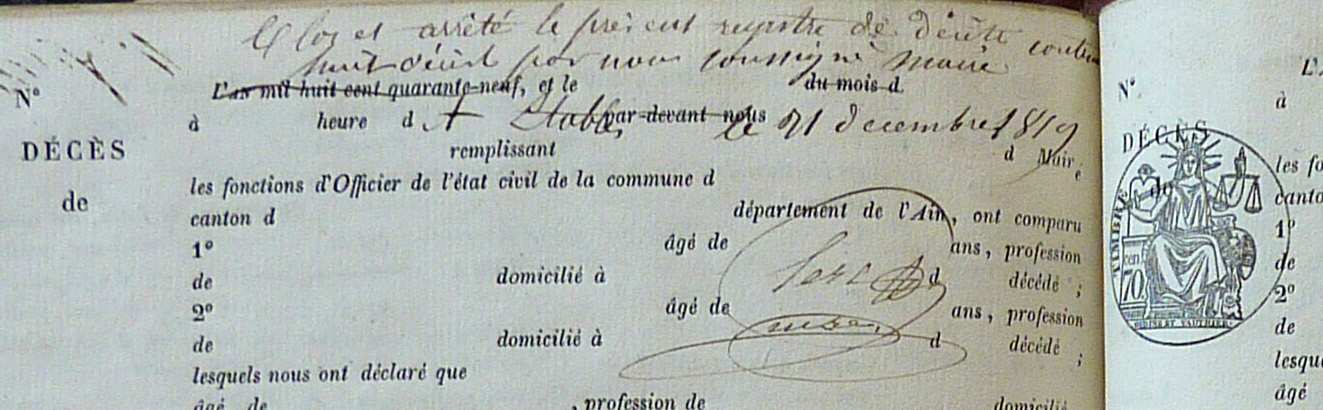 Clos et arrêté le présent registre de décès conten
huit décès par nous soussigné Maire
N° L'an mil huit cent quarante-neuf, et le du mois d
à heure d par-devant nous
A Etables le 31 décembre 1849
DÉCÈS remplissant d Maire
les fonctions d'Officier de l'état civil de la commune d
de canton d département de l'Ain, ont comparu
1° âgé de ans, profession
de domicilié à d décédé ;
2° âgé de ans, profession
de domicilié à d décédé ;
lesquels nous ont déclaré que
âgé de , profession de domicilié
N° L'
à
DÉCÈS
de
les fo
canto
1°
de
2°
de
lesqu
âgé
TIMBRE
cen
70